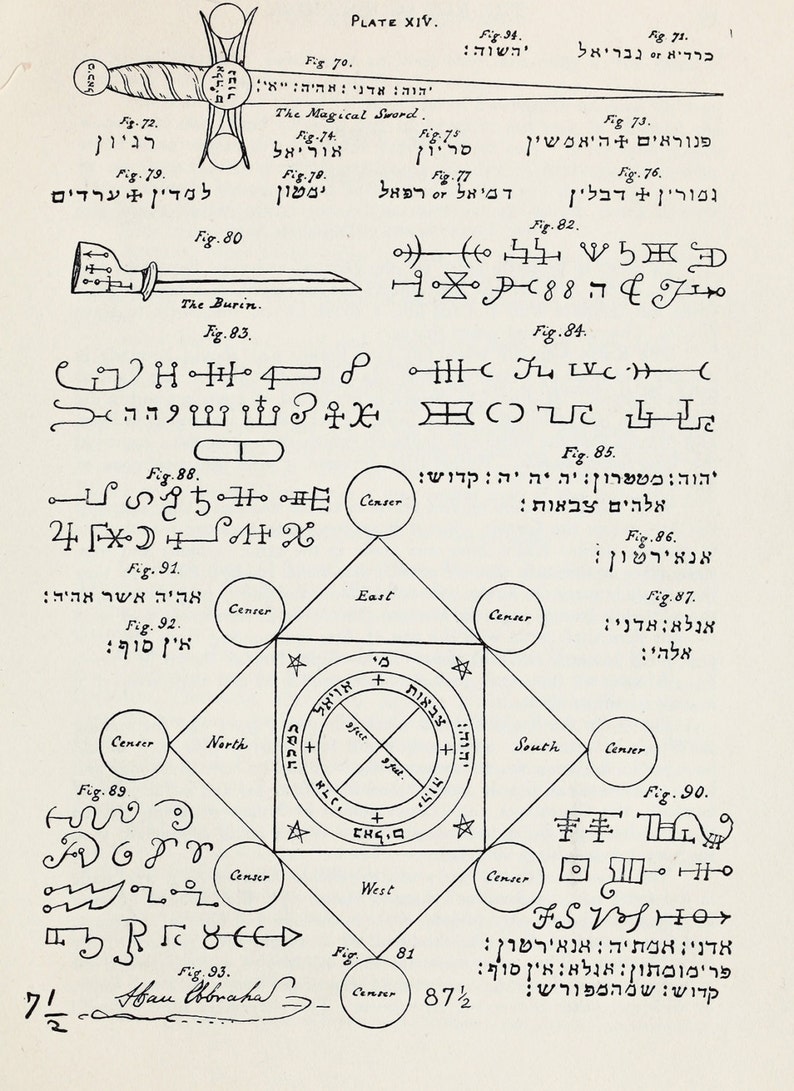 PLATE XIV.
Fig. 94.
יהשוה:
Fig. 71.
כרדיא or גבריאל
Fig 70.
מיכאל
אלהים גבור
יהוה: אדני: אהיה: ייאי:
The Magical Sword.
Fig. 72.
רגיון
Fig. 74.
אוריאל
Fig. 75
סריון
Fig 73.
פנוראים ✠ היאמשין
Fig. 79.
למדין ✠ ערדים
Fig. 78.
ימטון
Fig. 77
דמיאל or רפאל
Fig. 76.
גמורין ✠ דבלין
Fig. 80
The Burin.
Fig. 82.
Fig. 83.
Fig. 84.
Fig. 85.
יהוה: מטטרון: יה יה יה: קדוש:
אלהים צבאות:
Fig. 88.
Censer
Fig. 86.
אנאירטון:
Fig. 91.
אהיה אשר אהיה:
East
Censer
Censer
Fig. 87.
אגלא: אדני:
אלהי:
Fig. 92.
אין סוף:
צבאות
יהוה:
יהוה
אדני
9 feet
9 feet.
Censer
North
South
Censer
Fig. 89.
Fig. 90.
Censer
West
Censer
אדני: אמתיה: אנאירטון:
פרימומתון: אגלא: אין סוף:
קדוש: שמהמפורש:
Fig. 81
Censer
Fig. 93.
7 1/2
87 1/2